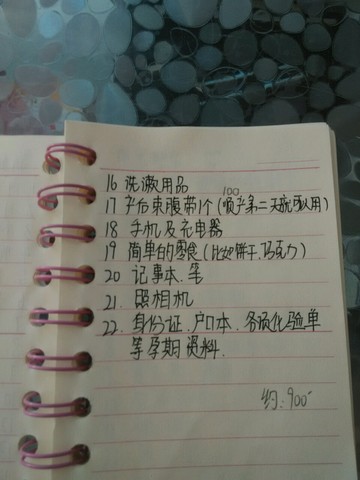 16 洗漱用品
100
17 产后束腹带1个(顺产第二天就可以用)
18 手机及充电器
19 简单的零食(比如饼干.巧克力)
20 记事本.笔
21. 照相机
22. 身份证.户口本.各项化验单
等孕期资料.
约:900